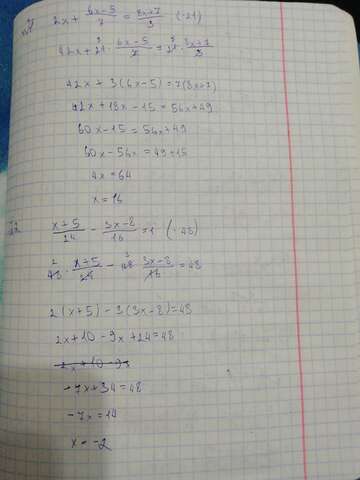 2x + (6x-5)/7 = (8x+7)/3 (·21)
42x + 21 · (6x-5)/7 = 21 · (8x+7)/3
42x + 3(6x-5) = 7(8x+7)
42x + 18x - 15 = 56x + 49
60x - 15 = 56x + 49
60x - 56x = 49 + 15
4x = 64
x = 16
(x+5)/24 - (3x-8)/16 = 1 (·48)
48 · (x+5)/24 - 48 · (3x-8)/16 = 48
2(x+5) - 3(3x-8) = 48
2x + 10 - 9x + 24 = 48
-7x + 34 = 48
-7x = 14
x = -2